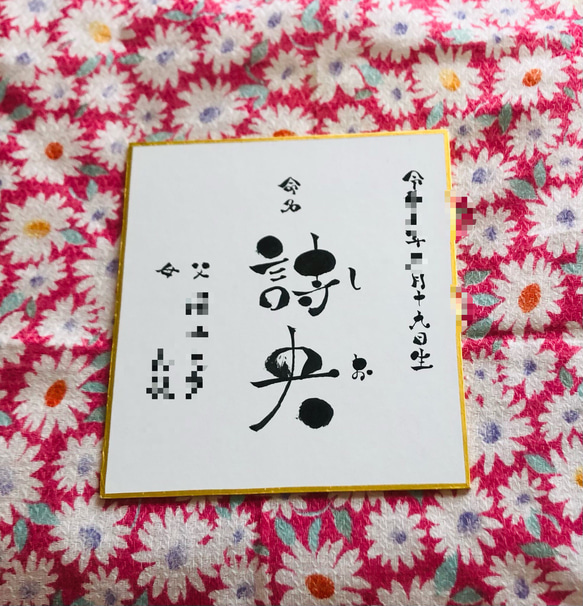 令 年 月十九日生
命名
詩央
しお
父
母